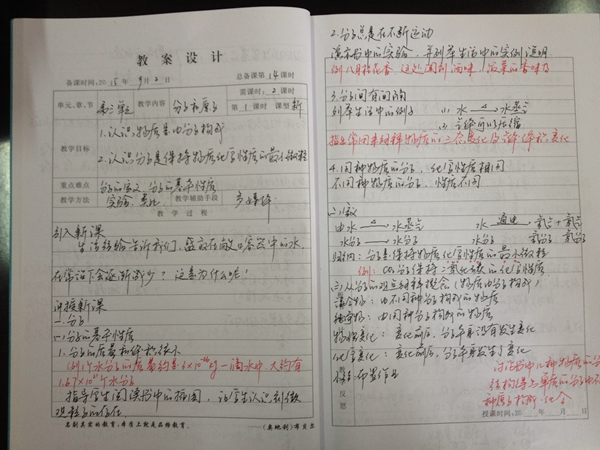 教案设计
备课时间:2018年9月2日 总备课第14课时
需课时:2课时
单元、章、节 第三单元 教学内容 分子和原子 第1课时 课型 新
教学目标
1.认识物质是由分子构成
2.认识分子是保持物质化学性质的最小微粒
重点难点 分子的定义,分子的基本性质
教学方法 实验、 教学辅助手段 多媒体
教学过程
引入新课
生活经验告诉我们,盛放在敞口容器中的水
在常温下会逐渐减少?这是为什么呢!
讲授新课
一.分子
(一)分子的基本性质
1.分子的质量和体积很小
例:1个水分子的质量约是3×10⁻²⁶kg 一滴水中大约有
1.67×10²¹个水分子
指导学生阅读书中的插图,让学生认识到微
观粒子的存在
名副其实的教育,本质上就是品格教育。 —(奥地利)布贝尔
2.分子总是在不断运动
演示书中的实验,并列举生活中的实例说明
例八月桂花香 酒味
3.分子间有间隔
列举生活中的例子 (1)水→水蒸气
(2)气体可以压缩
4.同种物质的分子,化学性质相同
不同种物质的分子,性质不同
由水→水蒸气 水 通电→ 氢气+氧气
水分子→水分子 水分子 氢分子 氧分子
归纳:分子是保持物质化学性质的最小微粒
例:CO₂分子保持二氧化碳的化学性质
(二)从分子的观点解释概念(物质由分子构成)
混合物:由不同种分子构成的物质
纯净物:由同种分子构成的物质
物理变化:变化前后,分子本身没有发生变化
化学变化:变化前后,分子本身发生了变化
布置作业
反
题
授课时间:20 年 月 日